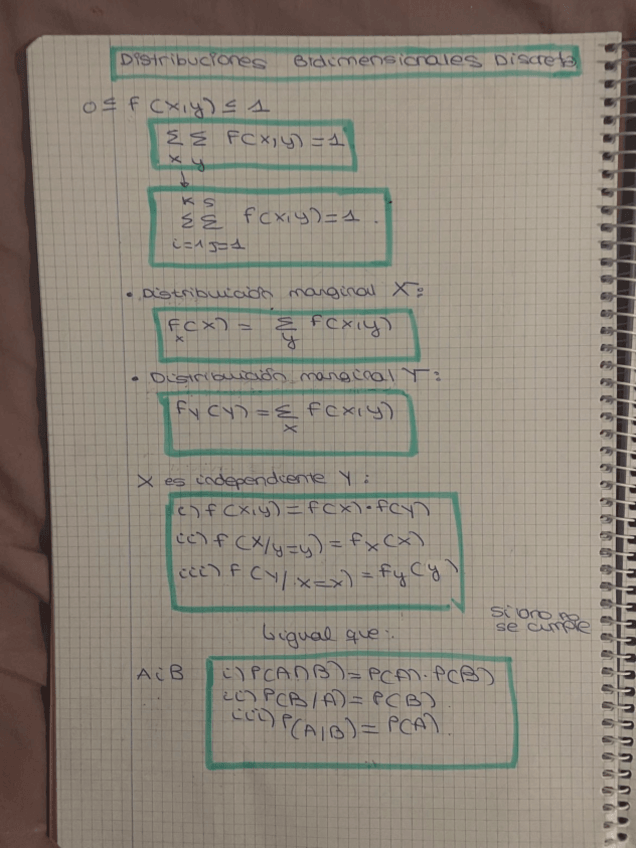 Distribuciones Bidimensionales Discreta
0 ≤ f(x,y) ≤ 1
Σ Σ f(x,y) = 1
x y
↓
k s
Σ Σ f(x,y) = 1.
i=1 j=1
• Distribución marginal X:
f(x) = Σ f(x,y)
x y
• Distribución marginal Y:
fy(y) = Σ f(x,y)
x
X es independiente Y:
i) f(x,y) = f(x)·f(y)
ii) f(x/y=y) = fx(x)
iii) f(y/x=x) = fy(y)
si uno no
se cumple
↳ igual que:
A i B
i) P(A∩B) = P(A)·P(B)
ii) P(B/A) = P(B).
iii) P(A|B) = P(A).